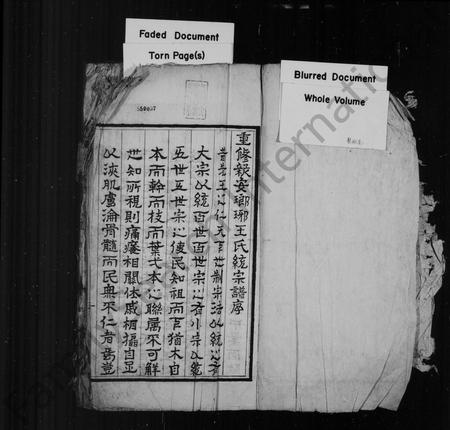 Faded Document
Torn Page(s)
Blurred Document
Whole Volume
550027
重修新安瑯琊王氏統宗譜序
昔先王以仁天下也制宗法以統之有
大宗以統百世百世宗之有小宗以統
五世五世宗之使民知祖而下猶木自
本而幹而枝而葉也本之聯屬不可解
也知所視則痛癢相關休戚相攝自足
以浹肌膚淪骨髓而民無不仁者焉豈